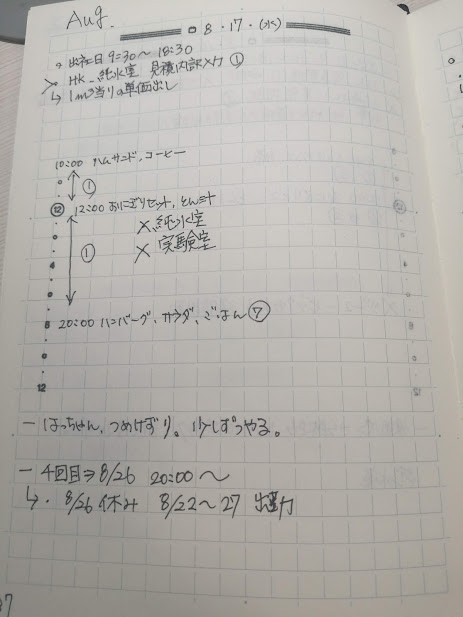 Aug.
8・17・(水)
・出社日 9:30〜18:30
HK_純水室 見積内訳メカ ①
↳ 1m³当りの単価出し
10:00 ハムサンド、コーヒー
①
⑫ 12:00 おにぎりセット、とん汁
×純水室
① × 実験室
4
8 20:00 ハンバーグ、サラダ、ごはん ⑦
12
ー はっちゃん、つめけずり。少しずつやる。
ー 4回目⇒8/26 20:00〜
↳・8/26 休み 8/22〜27